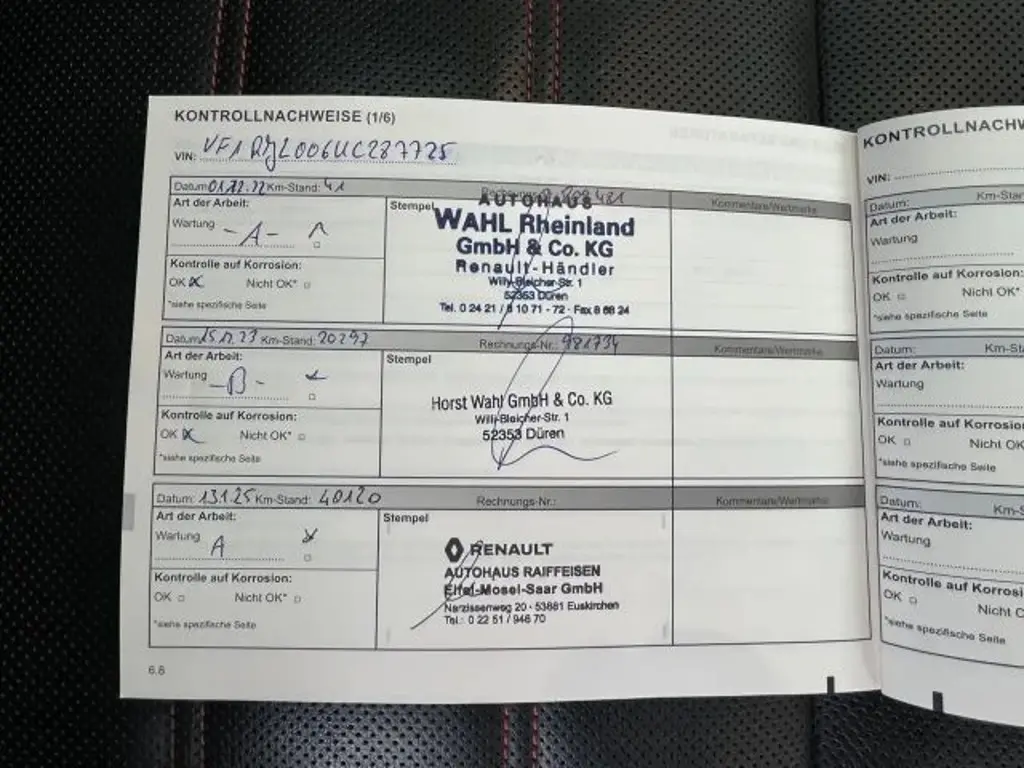 KONTROLLNACHWEISE (1/6)
VIN: VF1RJL006UC287725
Datum: 01.12.22 Km-Stand: 41
Art der Arbeit:
Wartung -A-
Kontrolle auf Korrosion:
OK Nicht OK*
*siehe spezifische Seite
Stempel
AUTOHAUS
WAHL Rheinland
GmbH & Co. KG
Renault-Händler
Willy-Bleicher-Str. 1
52353 Düren
Tel. 0 24 21 / 8 10 71 - 72 · Fax 8 68 24
Kommentare/Wertmarke
Datum: 15.11.23 Km-Stand: 20297 Rechnungs-Nr.: 981734 Kommentare/Wertmarke
Art der Arbeit:
Wartung -B-
Kontrolle auf Korrosion:
OK Nicht OK*
*siehe spezifische Seite
Stempel
Horst Wahl GmbH & Co. KG
Willy-Bleicher-Str. 1
52353 Düren
Datum: 13.1.25 Km-Stand: 40120 Rechnungs-Nr.: Kommentare/Wertmarke
Art der Arbeit:
Wartung A
Kontrolle auf Korrosion:
OK Nicht OK*
*siehe spezifische Seite
Stempel
RENAULT
AUTOHAUS RAIFFEISEN
Eifel-Mosel-Saar GmbH
Narzissenweg 20 · 53881 Euskirchen
Tel.: 0 22 51 / 946 70
6.8
KONTROLLNACHW
VIN:
Datum: Km-Star
Art der Arbeit:
Wartung
Kontrolle auf Korrosion:
OK Nicht OK*
*siehe spezifische Seite
Datum: Km-Sta
Art der Arbeit:
Wartung
Kontrolle auf Korrosion:
OK Nicht OK
*siehe spezifische Seite
Datum: Km-S
Art der Arbeit:
Wartung
Kontrolle auf Korrosi
OK Nicht C
*siehe spezifische Seite